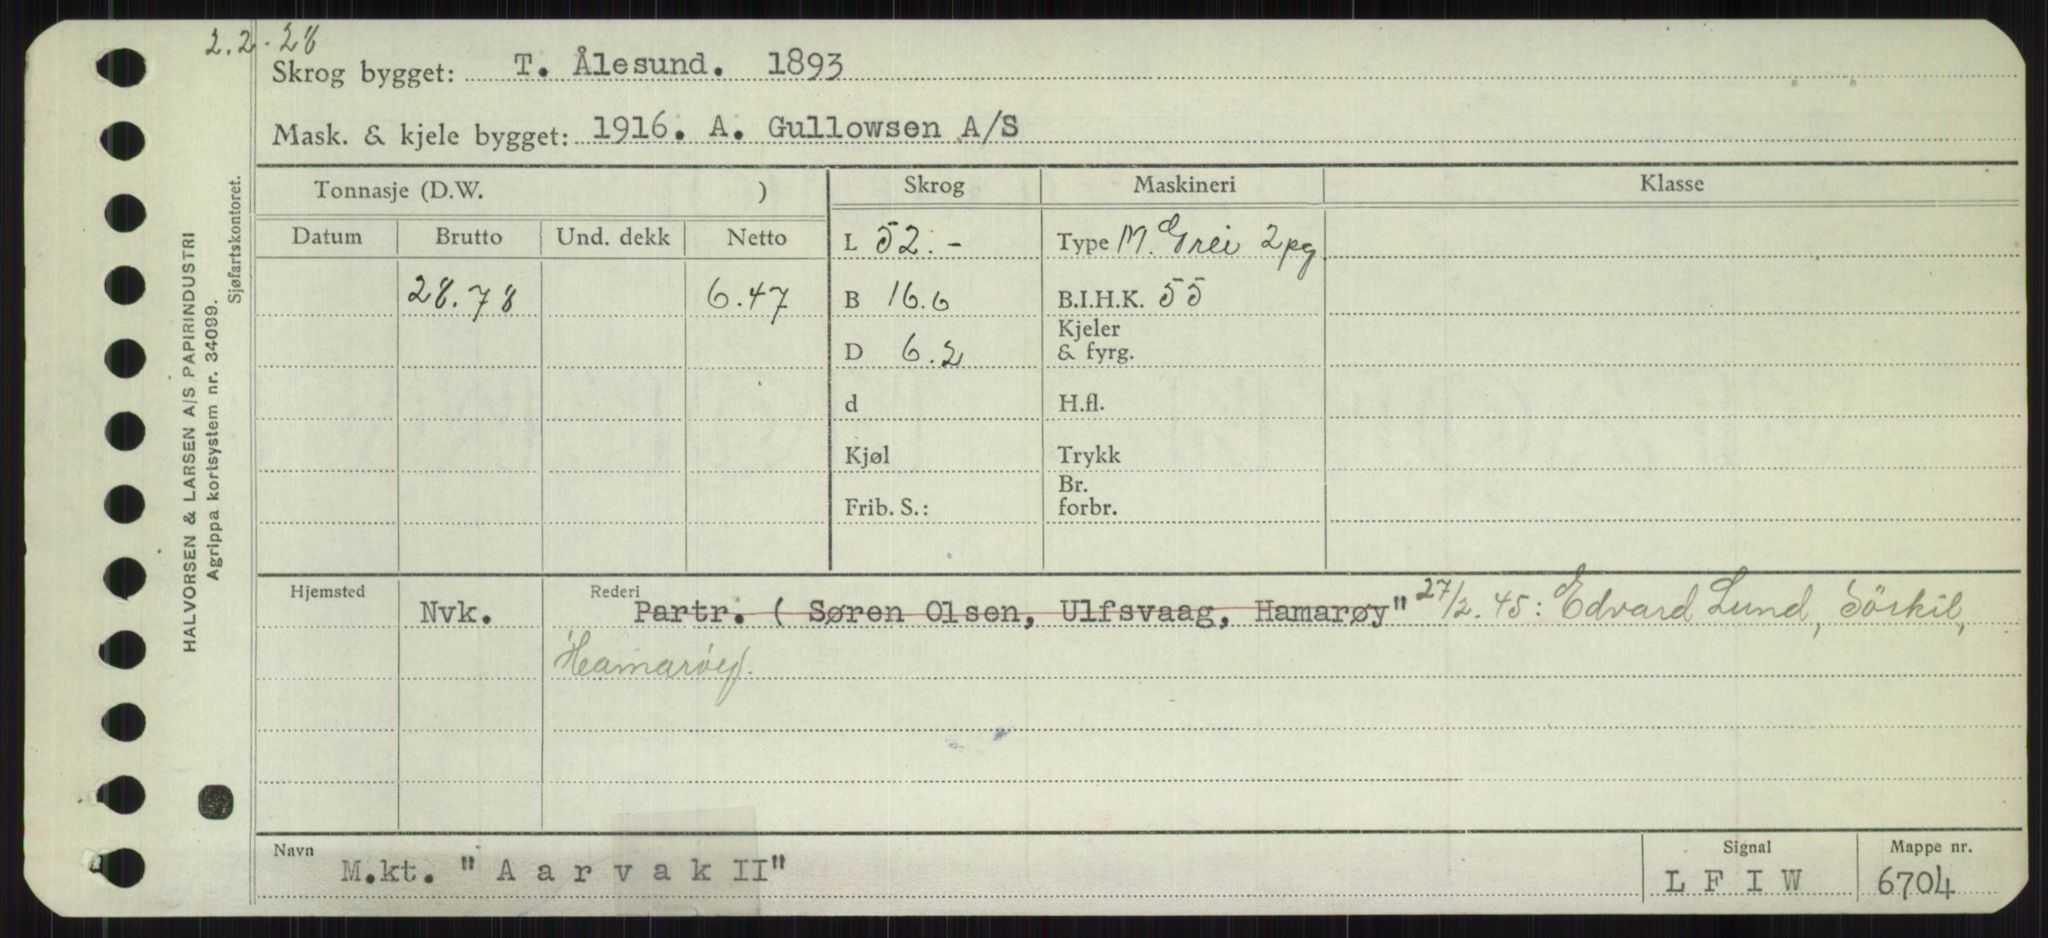 2.2.28
Skrog bygget: T. Ålesund. 1893
Mask. & kjele bygget: 1916. A. Gullowsen A/S
HALVORSEN & LARSEN A/S PAPIRINDUSTRI
Agrippa kortsystem nr. 34099.
Sjøfartskontoret.
Tonnasje (D.W. ) Skrog Maskineri Klasse
Datum Brutto Und. dekk Netto L 52.- Type M. Grei 2 pg
28.78 6.47 B 16.6 B.I.H.K. 55
D 6.2 Kjeler
& fyrg.
d H.fl.
Kjøl Trykk
Frib. S.: Br.
forbr.
Hjemsted Rederi
Nvk. Partr. ( Søren Olsen, Ulfsvaag, Hamarøy" 27/2.45: Edvard Lund, Sörkil,
Hamarøy.
Navn Signal Mappe nr.
M.kt. "A a r v a k II" L F I W 6704